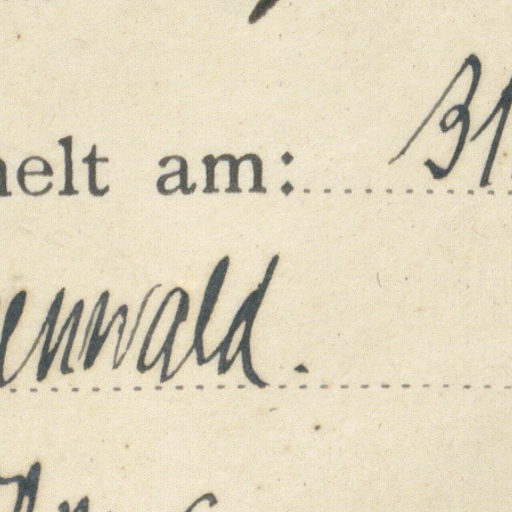 elt am: 31
enwald.